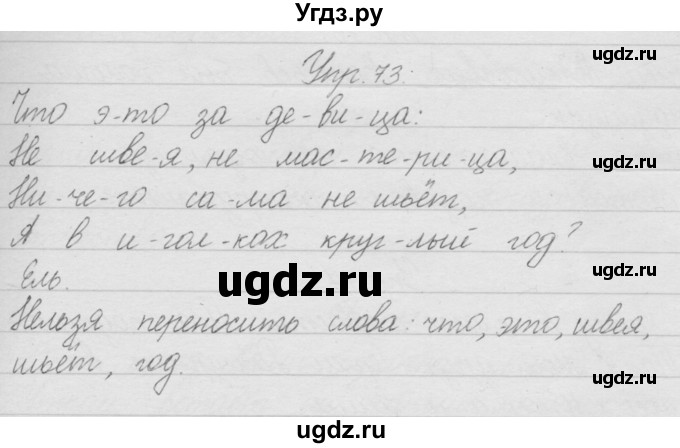 Угдз.ру
ugdz.ru
Упр. 73.
ugdz.ru
Что э-то за де-ви-ца:
ugdz.ru
Не шве-я, не мас-те-ри-ца,
ugdz.ru
Ни-че-го са-ма не шьёт,
ugdz.ru
А в и-гол-ках круг-лый год?
ugdz.ru
Ель.
ugdz.ru
Нельзя переносить слова: что, это, швея,
шьёт, год.
ugdz.ru
ugdz.ru